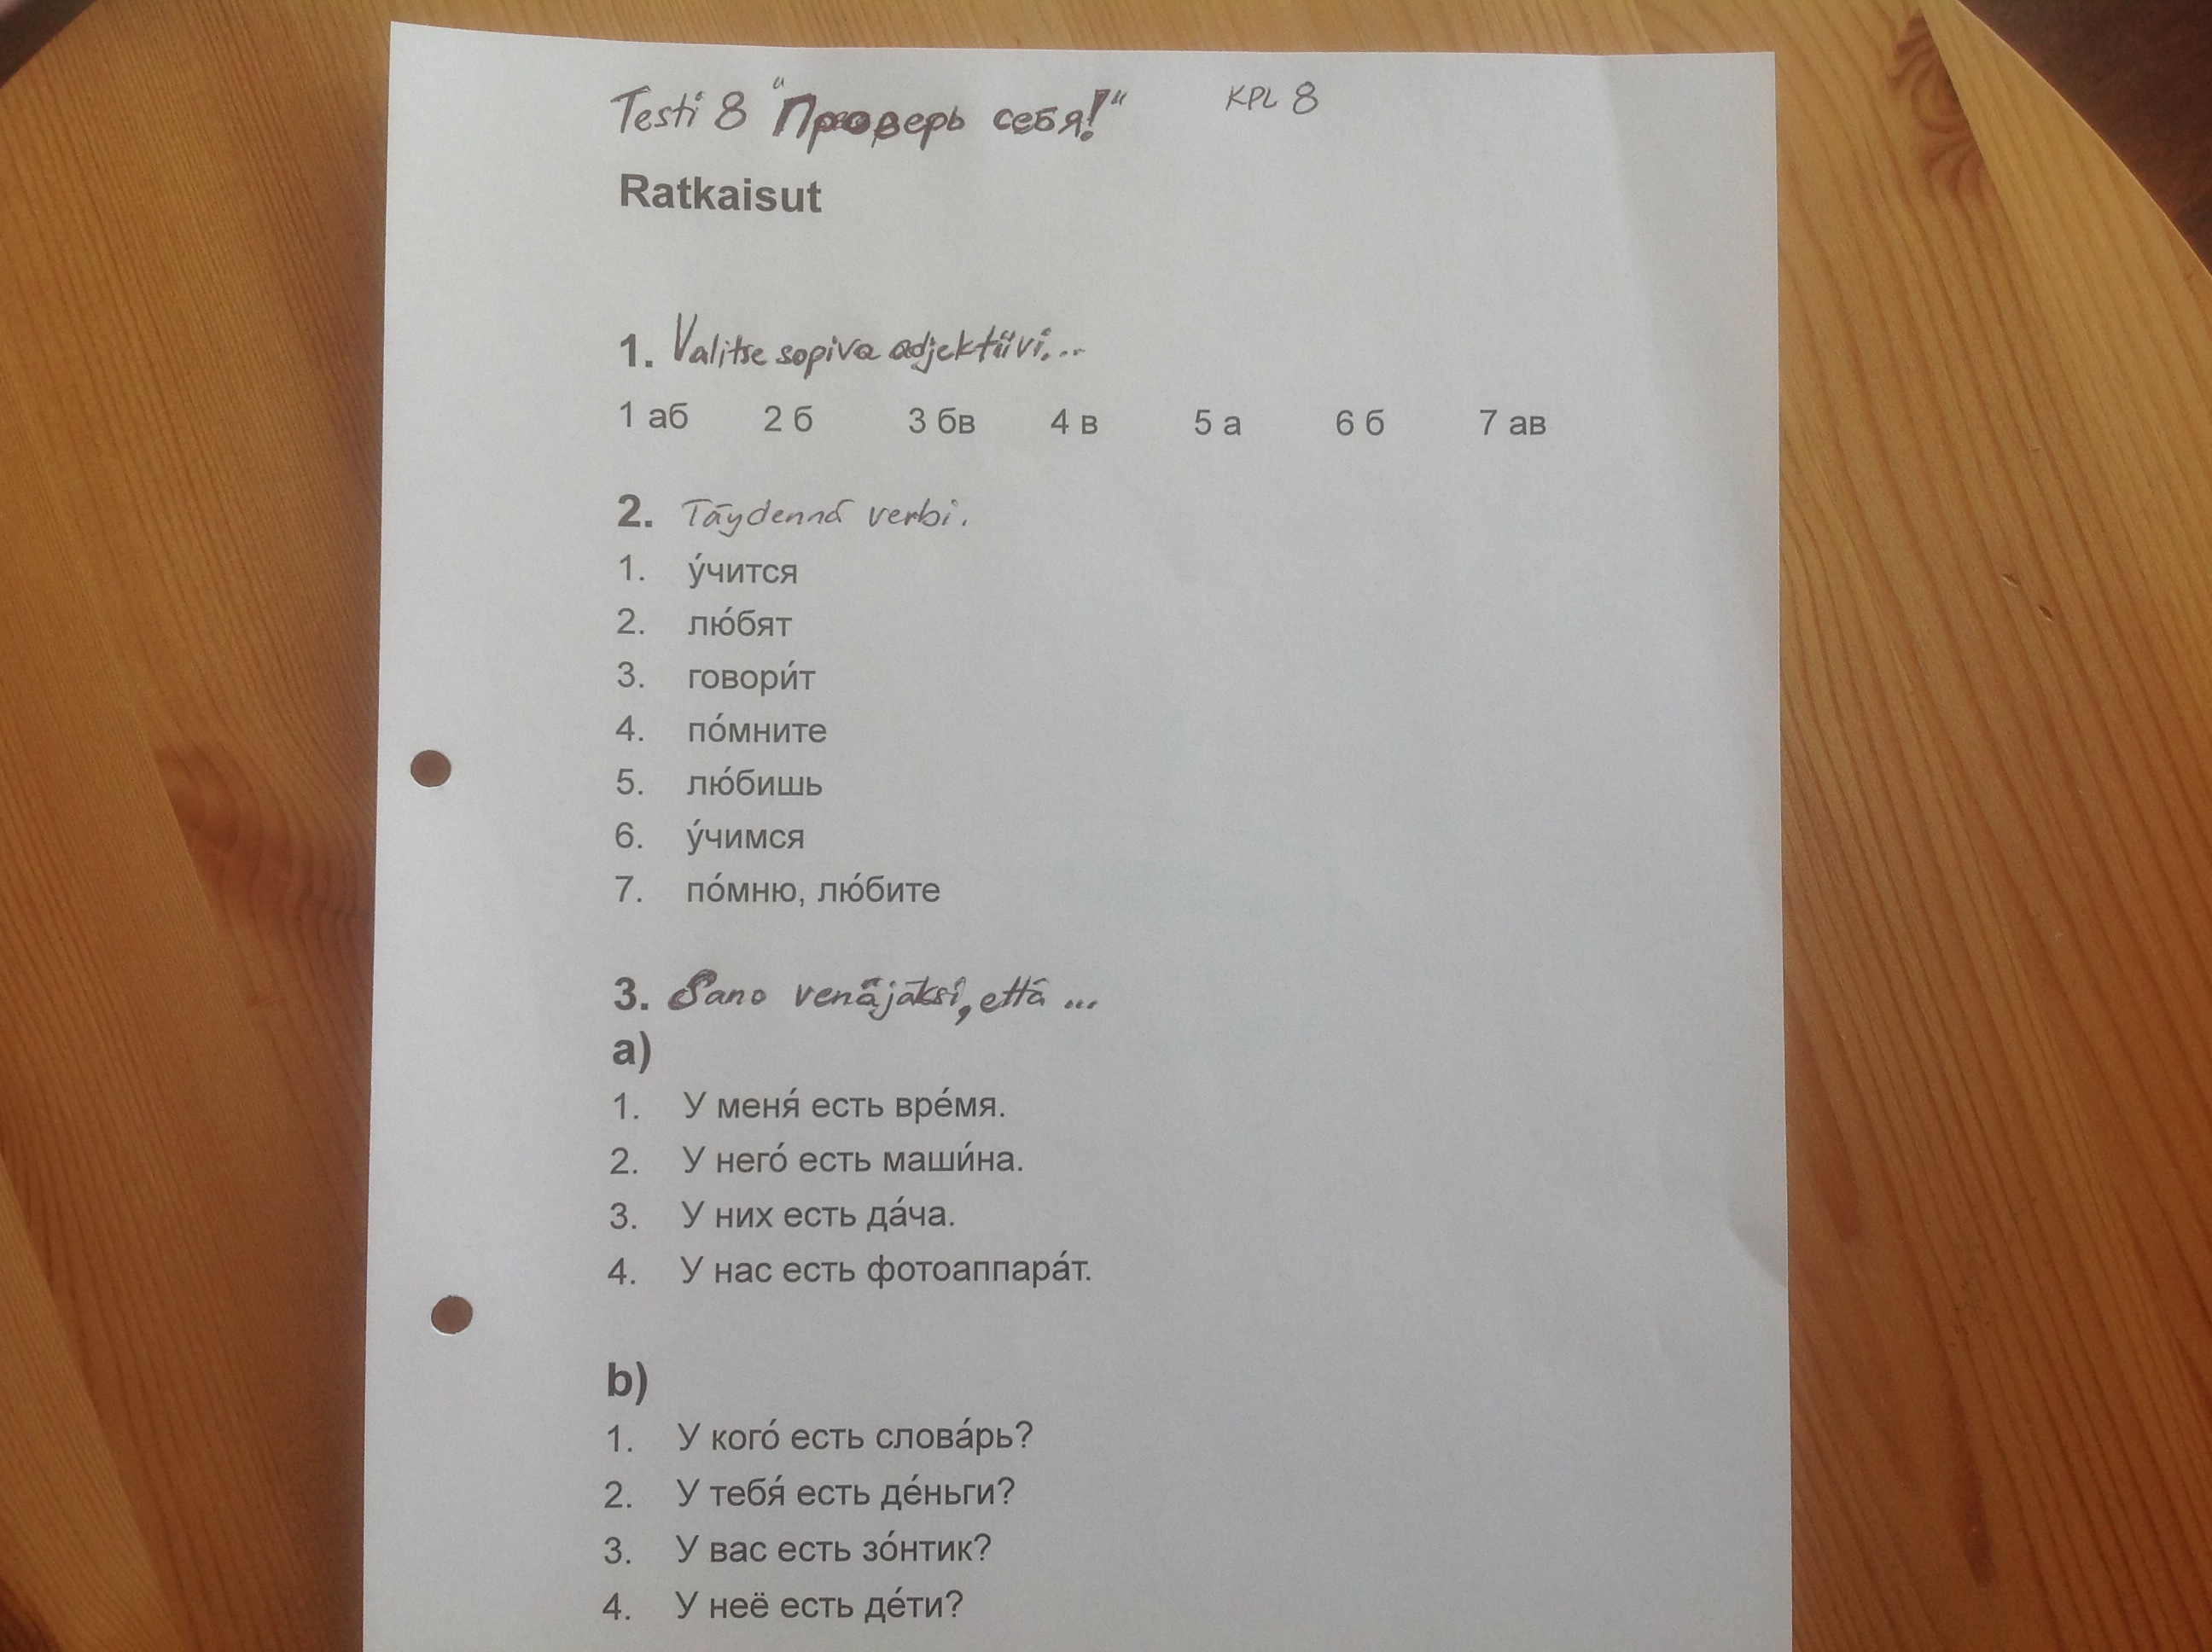 Testi 8 "Проверь себя!" KPL 8
Ratkaisut
1. Valitse sopiva adjektiivi...
1 аб 2 б 3 бв 4 в 5 а 6 б 7 ав
2. Täydennä verbi.
1. у́чится
2. лю́бят
3. говори́т
4. по́мните
5. лю́бишь
6. у́чимся
7. по́мню, лю́бите
3. Sano venäjäksi, että ...
a)
1. У меня́ есть вре́мя.
2. У него́ есть маши́на.
3. У них есть да́ча.
4. У нас есть фотоаппара́т.
b)
1. У кого́ есть слова́рь?
2. У тебя́ есть де́ньги?
3. У вас есть зо́нтик?
4. У неё есть де́ти?